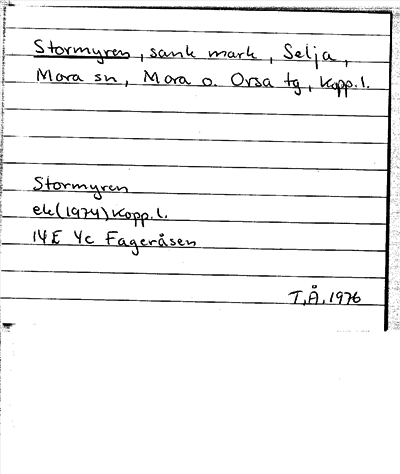 Stormyren, sank mark, Selja,
Mora sn, Mora o. Orsa tg, Kopp.l.
Stormyren
ek(1974)Kopp.l.
14E 4c Fageråsen
T.Å. 1976